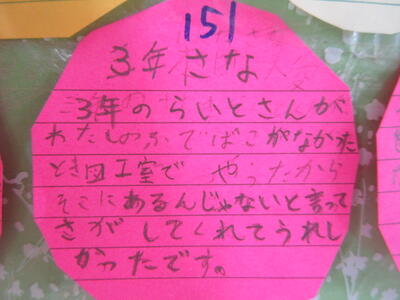 151
3年 さな
3年のらいとさんが
わたしのふでばこがなかった
とき図工室で やったから
そこにあるんじゃないと言って
さがしてくれてうれし
かったです。